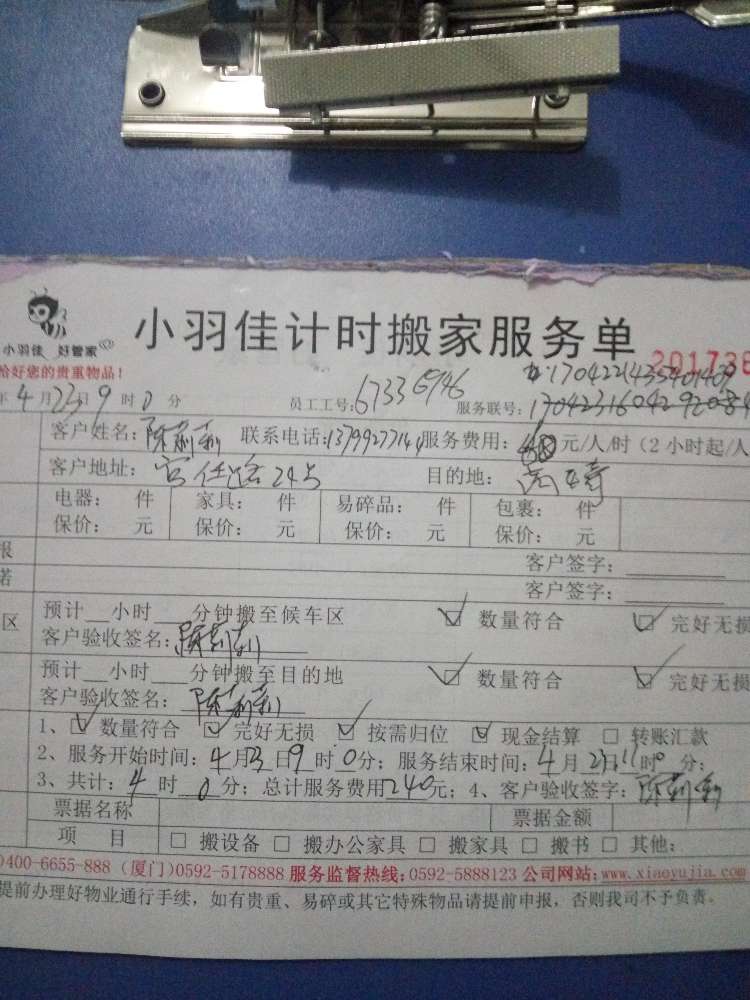 小羽佳计时搬家服务单
小羽佳 好管家
给好您的贵重物品! 201738
年4月23日9时0分 员工工号:67336946 服务联号:
客户姓名:陈莉莉 联系电话:13799277144 服务费用: 元/人/时(2小时起/人
客户地址: 24号 目的地:
电器: 件 家具: 件 易碎品: 件 包裹: 件
保价: 元 保价: 元 保价: 元 保价: 元
报 客户签字:
诺 客户签字:
区 预计 小时 分钟搬至候车区 ☑ 数量符合 ☑ 完好无损
客户验收签名:陈莉莉
预计 小时 分钟搬至目的地 ☑ 数量符合 ☑ 完好无损
客户验收签名:陈莉莉
1、☑ 数量符合 ☑ 完好无损 ☑ 按需归位 ☑ 现金结算 □ 转账汇款
2、服务开始时间:4月23日9时0分;服务结束时间:4月23日11时0分;
3、共计:4时0分;总计服务费用240元;4、客户验收签字:陈莉莉
票据名称 票据金额
项 目 □ 搬设备 □ 搬办公家具 □ 搬家具 □ 搬书 □ 其他:
0400-6655-888(厦门)0592-5178888 服务监督热线:0592-5888123 公司网站:www.xiaoyujia.com
提前办理好物业通行手续,如有贵重、易碎或其它特殊物品请提前申报,否则我司不予负责。